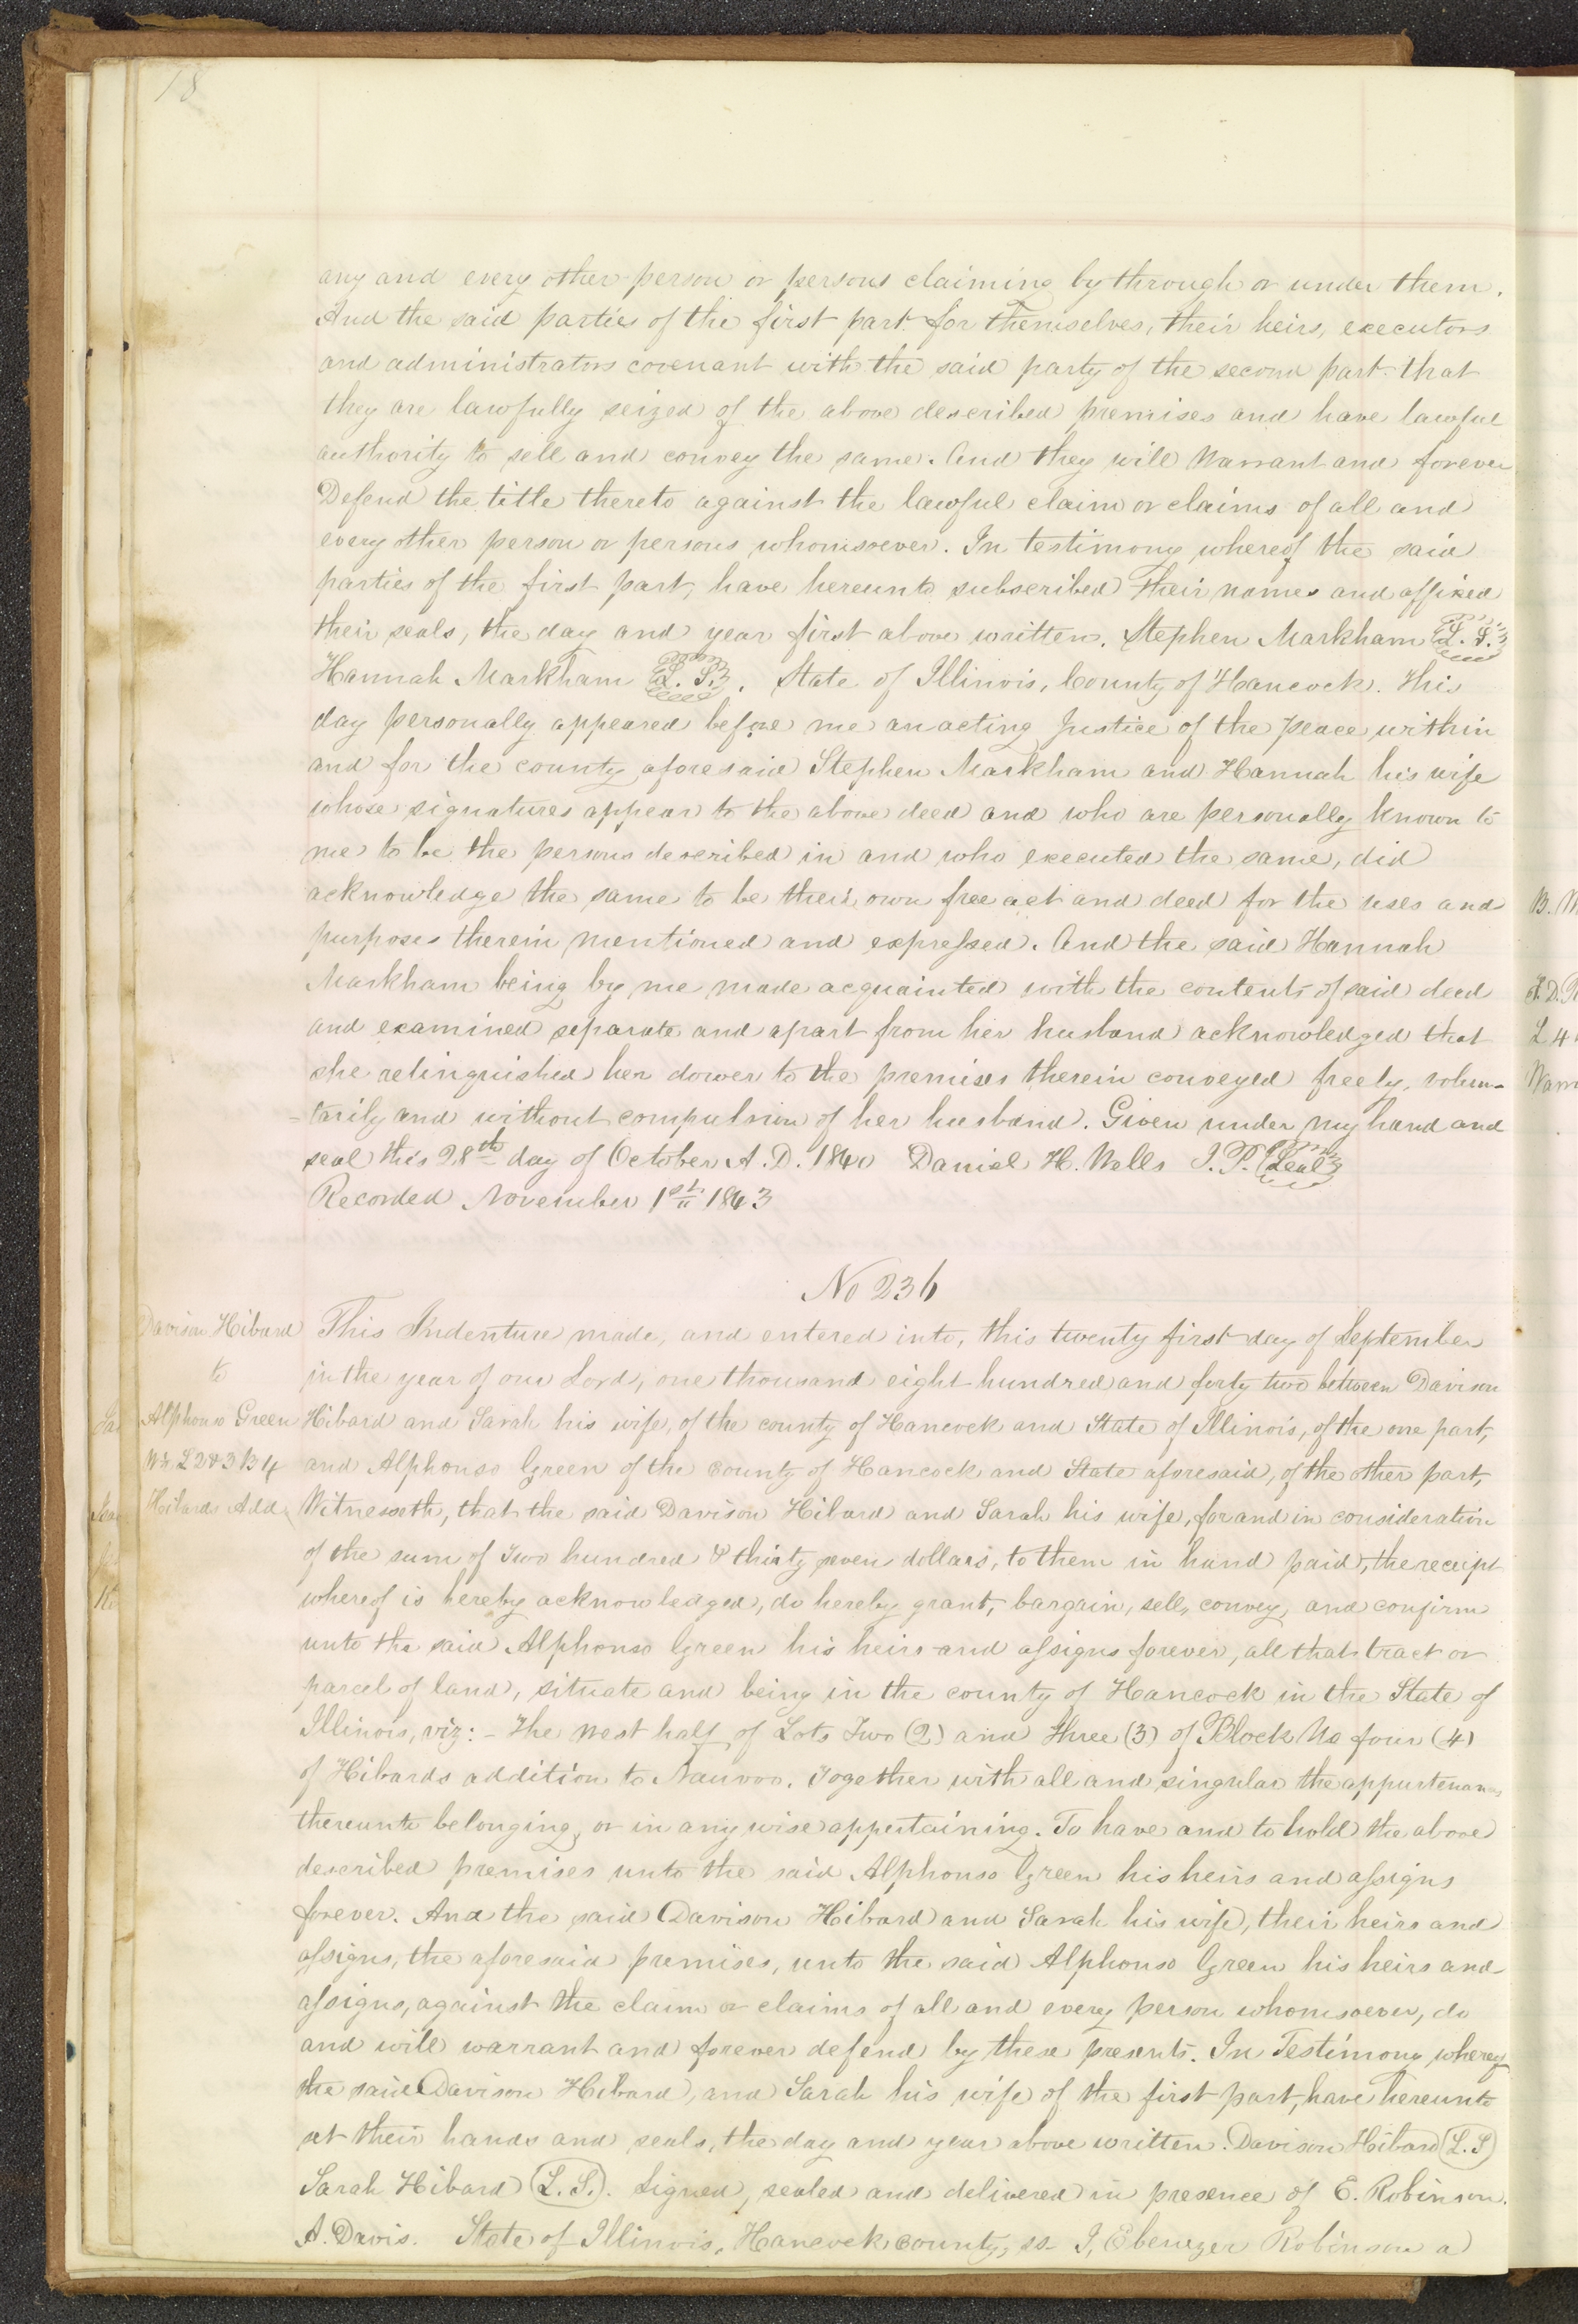 18
any and every other person or persons claiming by through or under them.
And the said parties of the first part for themselves, their heirs, executors
and administrators covenant with the said party of the second part that
they are lawfully seized of the above described premises and have lawful
authority to sell and convey the same. And they will Warrant and forever
Defend the title thereto against the lawful claim or claims of all and
every other person or persons whomsoever. In testimony whereof the said
parties of the first part, have hereunto subscribed their names and affixed
their seals, the day and year first above written. Stephen Markham L. S.
Hannah Markham L. S. State of Illinois, County of Hancock. This
day personally appeared before me an acting Justice of the peace within
and for the county aforesaid Stephen Markham and Hannah his wife
whose signatures appear to the above deed and who are personally known to
me to be the persons described in and who executed the same, did
acknowledge the same to be their own free act and deed for the uses and
purposes therein mentioned and expressed. And the said Hannah
Markham being by me made acquainted with the contents of said deed
and examined separate and apart from her husband acknowledged that
she relinquished her dower to the premises therein conveyed freely, volun-
=tarily and without compulsion of her husband. Given under my hand and
seal this 28th day of October A.D. 1840 Daniel H. Wells J.P. Seal
Recorded November 1st 1843
No 236
Davison Hibard
to
Alphonso Green
W½ L 2 & 3 B 4
Hibards Add
This Indenture made, and entered into, this twenty first day of September
in the year of our Lord, one thousand eight hundred and forty two between Davison
Hibard and Sarah his wife, of the county of Hancock and State of Illinois, of the one part,
and Alphonso Green of the County of Hancock and State aforesaid, of the other part,
Witnesseth, that the said Davison Hibard and Sarah his wife, for and in consideration
of the sum of Two hundred & thirty seven dollars, to them in hand paid, the receipt
whereof is hereby acknowledged, do hereby grant, bargain, sell, convey, and confirm
unto the said Alphonso Green his heirs and assigns forever, all that tract or
parcel of land, situate and being in the county of Hancock in the State of
Illinois, viz: - The West half of Lots Two (2) and Three (3) of Block No four (4)
of Hibards addition to Nauvoo. Together with all and singular the appurtenances
thereunto belonging, or in any wise appertaining. To have and to hold the above
described premises unto the said Alphonso Green his heirs and assigns
forever. And the said Davison Hibard and Sarah his wife, their heirs and
assigns, the aforesaid premises, unto the said Alphonso Green his heirs and
assigns, against the claim or claims of all and every person whomsoever, do
and will warrant and forever defend by these presents. In Testimony whereof
the said Davison Hibard, and Sarah his wife of the first part, have hereunto
set their hands and seals, the day and year above written. Davison Hibard L.S
Sarah Hibard L.S. Signed, sealed and delivered in presence of E. Robinson.
A. Davis. State of Illinois, Hancock County, ss I, Ebenezer Robinson a